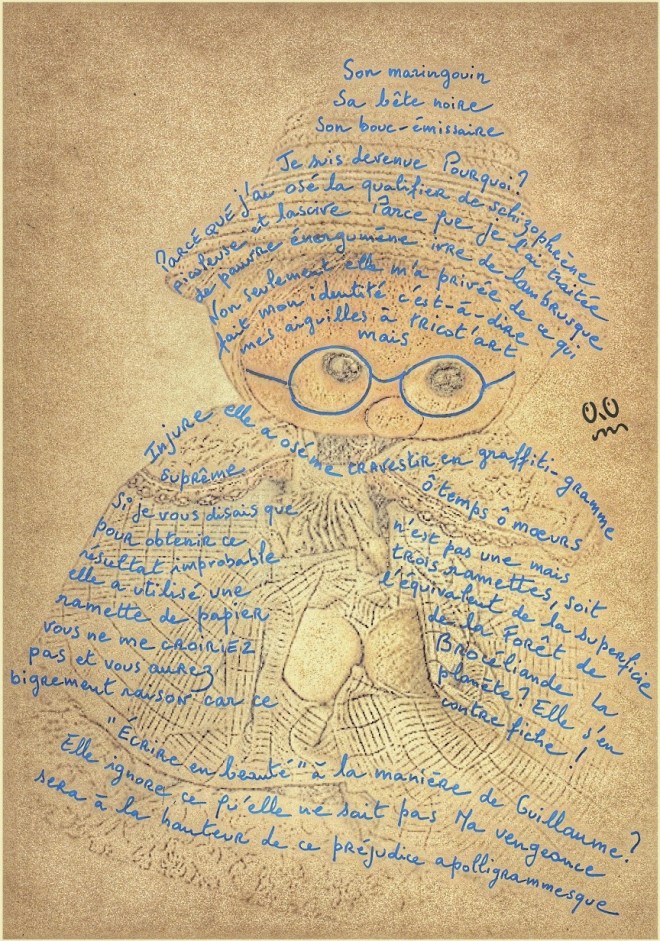 Son maringouin
Sa bête noire
Son bouc-émissaire
Je suis devenue Pourquoi?
PARCE QUE j'ai osé la qualifier de schizophrène
picoleuse et lascive Parce que je l'ai traitée
de pauvre énergumène ivre de lambrusque
Non seulement elle m'a privée de ce qui
fait mon identité c'est-à-dire
mes aiguilles à tricot'art
mais
Injure elle a osé me travestir en graffiti-gramme
suprême
ô temps ô mœurs
Si je vous disais que
pour obtenir ce
résultat improbable
elle a utilisé une
ramette de papier
vous ne me croiriez
pas et vous aurez
bigrement raison car ce
n'est pas une mais
trois ramettes, soit
l'équivalent de la superficie
de la Forêt de
Brocéliande La
planète? Elle s'en
contre fiche!
"Écrire en beauté" à la manière de Guillaume?
Elle ignore ce qu'elle ne sait pas Ma vengeance
sera à la hauteur de ce préjudice apolligrammesque